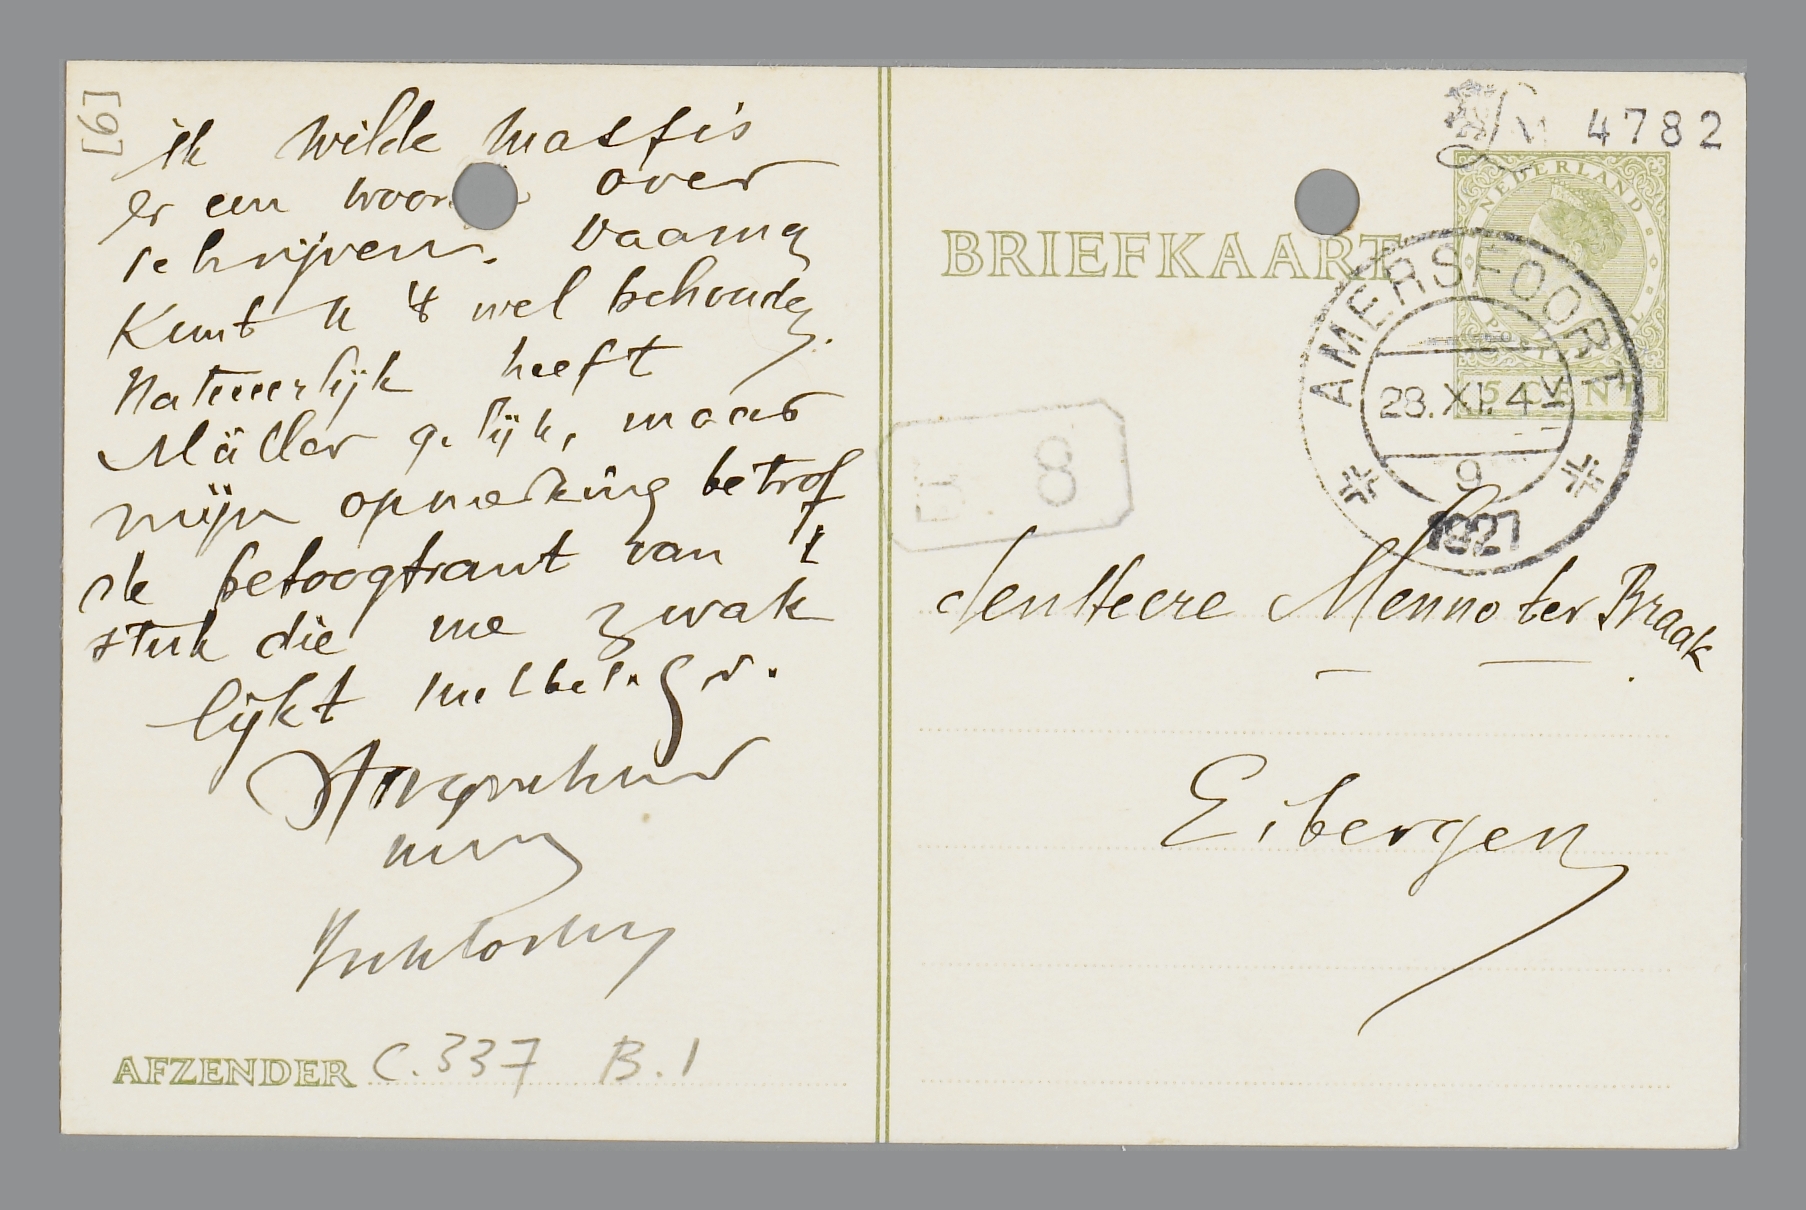 [9]
ik wilde Massis
er een woord over
schrijven. Daarna
Kunt U 't wel behouden.
Natuurlijk heeft
Müller gelijk, maar
mijn opmerking betrof
de betoogtrant van 't
stuk die me zwak
lijkt
AFZENDER C.337 B.1
4782
NEDERLAND
BRIEFKAART
5 CENT
AMERSFOORT
28.XI.4
9
1927
8
den Heere Menno ter Braak
Eibergen